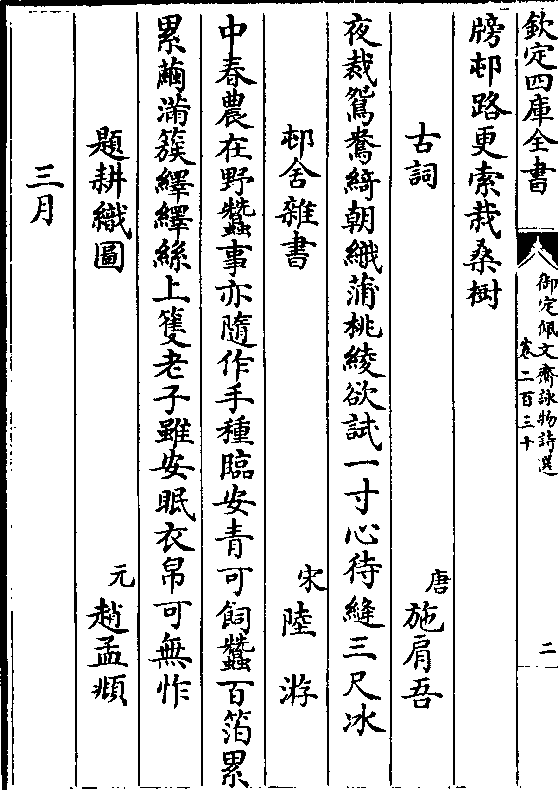 欽定四庫全書
御定佩文齋詠物詩選
卷二百三十
二
牓邨路更索栽桑樹
古詞
唐
施肩吾
夜裁鴛鴦綺朝織蒲桃綾欲試一寸心待縫三尺冰
邨舍雜書
宋
陸游
中春農在野蠶事亦隨作手種臨安青可飼蠶百箔累
累繭滿簇繹繹絲上籰老子雖安眠衣帛可無怍
題耕織圖
元
趙孟頫
三月